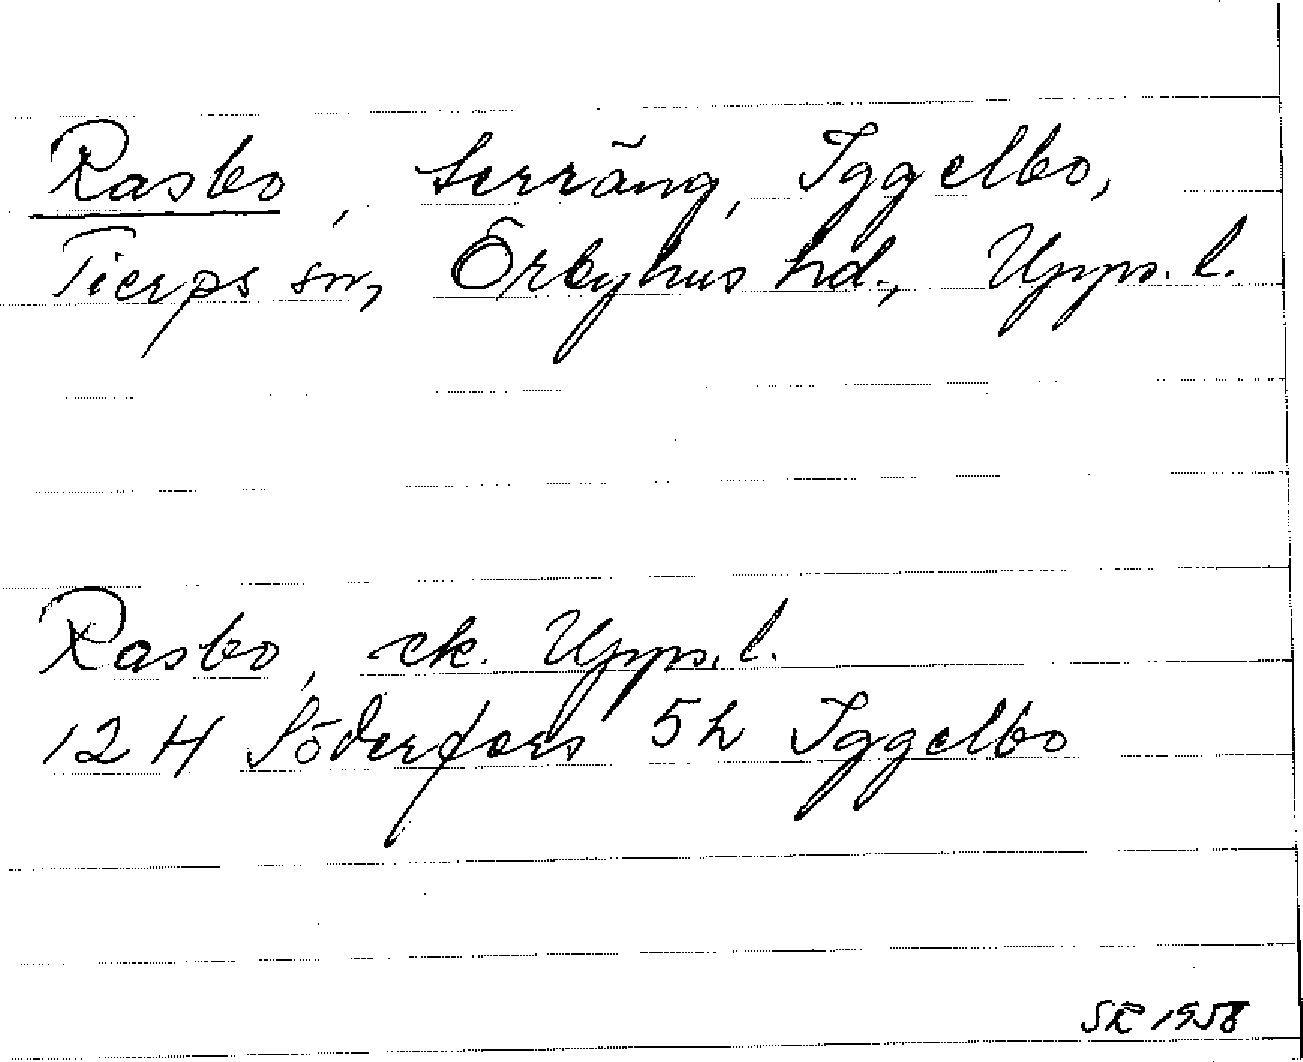 Rasbo, terräng, Iggelbo,
Tierps sn, Örbyhus hd., Upps. l.
Rasbo, ek. Upps. l.
12 H Söderfors 5h Iggelbo
SR 1958